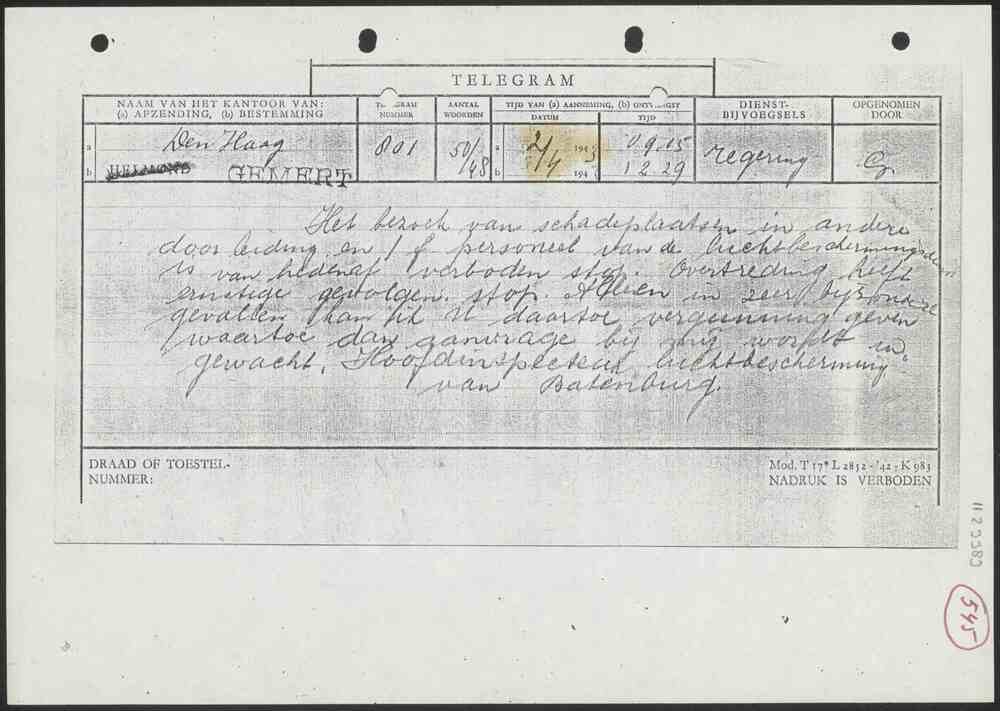 TELEGRAM
NAAM VAN HET KANTOOR VAN:
(a) AFZENDING, (b) BESTEMMING
TELEGRAM NUMMER
AANTAL WOORDEN
TIJD VAN (a) AANNEMING, (b) ONTVANGST
DATUM
TIJD
DIENST-
BIJVOEGSELS
OPGENOMEN
DOOR
a Den Haag 801 50/48 a 2/4 1943 09.15 regering G.
b HELMOND GEMERT b 2/4 194 12 29
Het bezoek van schadeplaatsen in andere
door leiding en / of personeel van de luchtbeschermingsdiensten
is van hedenaf verboden stop. Overtreding heeft
ernstige gevolgen. stop. Alleen in zeer bijzondere
gevallen kan ik U daartoe vergunning geven
waartoe dan aanvrage bij mij wordt in-
gewacht. Hoofdinspecteur luchtbescherming
van Batenburg.
DRAAD OF TOESTEL-
NUMMER:
Mod. T 17* L 2852 - '42 - K 983
NADRUK IS VERBODEN
545